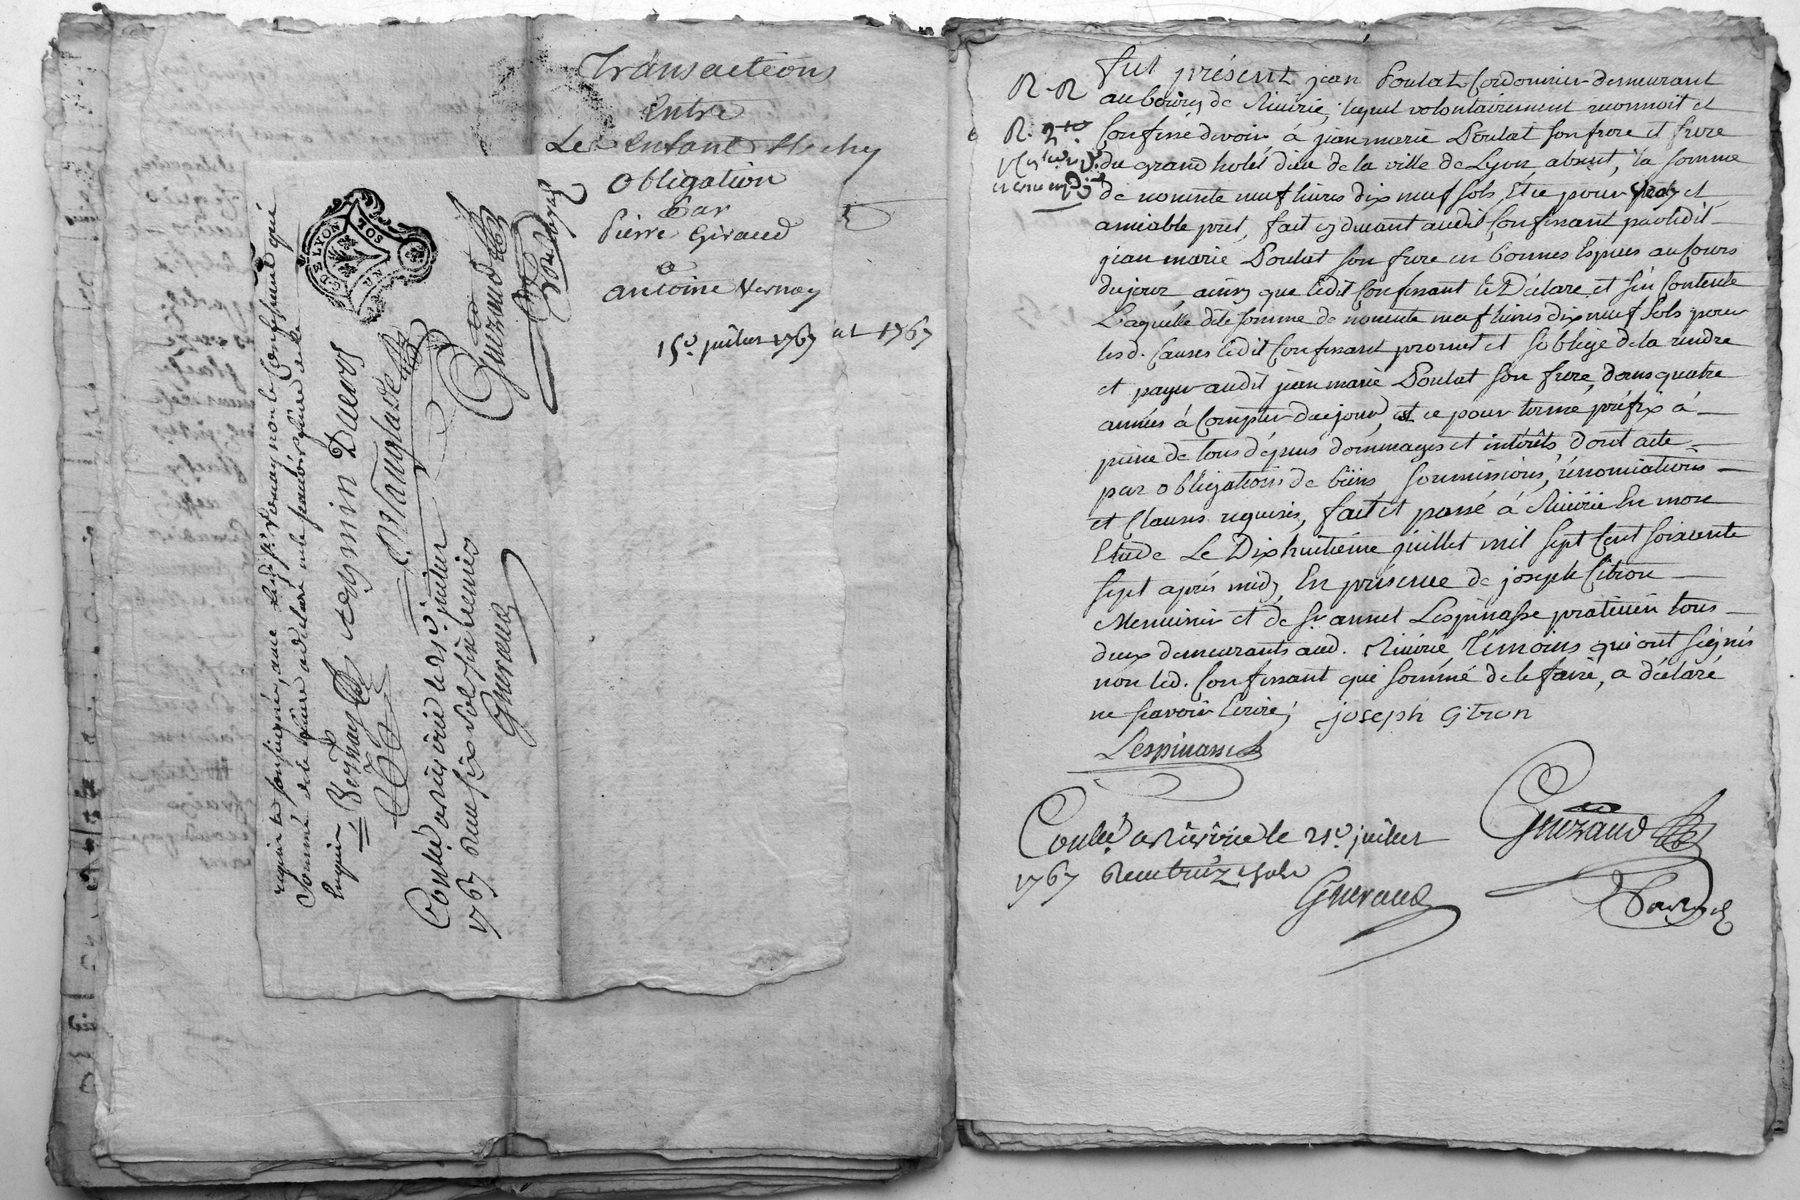 Transactions
Entre
Les Enfants
Obligation
Par
Pierre Giraud
a
antoine Vernay
15e. juillet 1767 1767
DE LYON
SOLS
requis et soussignés, avec led. sr. Vernay non le Confessant qui
Sommé de le faire a declaré ne le scavoir faire de ce
Enquis
Vernay
Duevos
Guerzaud
Conllé a Riverie le 21e. juillet
1767 Receu six sols six deniers
Gueraud
R. R
R.
fut présent jean Poulat Cordonnier demeurant
au bourg de Riverie, lequel volontairement reconnoit et
Confesse devoir à jean marie Poulat son frere et frere
du grand hotel dieu de la ville de Lyon, absent, la somme
de nonente neuf livres dix neuf sols, Et ce pour pret et
amiable pret, fait cy devant audit Confessant par ledit
jean marie Poulat son frere en bonnes Espèces au Cours
du jour, ainsy que ledit Confessant l'a Déclaré et s'en Contente
Laquelle dite somme de nonente neuf livres dix neuf sols pour
lesd. Causes ledit Confessant promet et s'oblige de la rendre
et payer audit jean marie Poulat son frere, dans quatre
années à Compter de ce jour, et ce pour terme préfix à
peine de tous dépens dommages et intérêts, dont acte
par obligations de biens, soumissions, rénonciations
et Clauses requises, fait et passé à Riverie En mon
Etude Le Dix huitième juillet mil sept Cent soixante
sept après midy, En présence de joseph Citron
Menuisier et de Sr. annet Lespinasse praticien tous
deux demeurants aud. Riverie Témoins qui ont signés
non led. Confessant qui sommé de le faire, a déclaré
ne scavoir Ecrire;
joseph Citron
Lespinasse
Guerzaud
Conllé a Riverie le 21e. juillet
1767 Receu treize sols
Gueraud